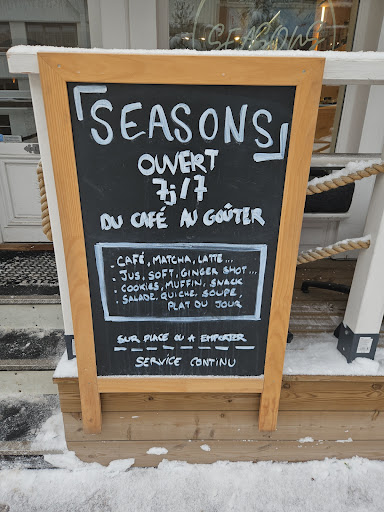 SEASONS
SEASONS
OUVERT
7j/7
DU CAFÉ AU GOÛTER
- CAFÉ, MATCHA, LATTE...
- JUS, SOFT, GINGER SHOT...
- COOKIES, MUFFIN, SNACK
- SALADE, QUICHE, SOUPE,
PLAT DU JOUR
SUR PLACE OU A EMPORTER
SERVICE CONTINU